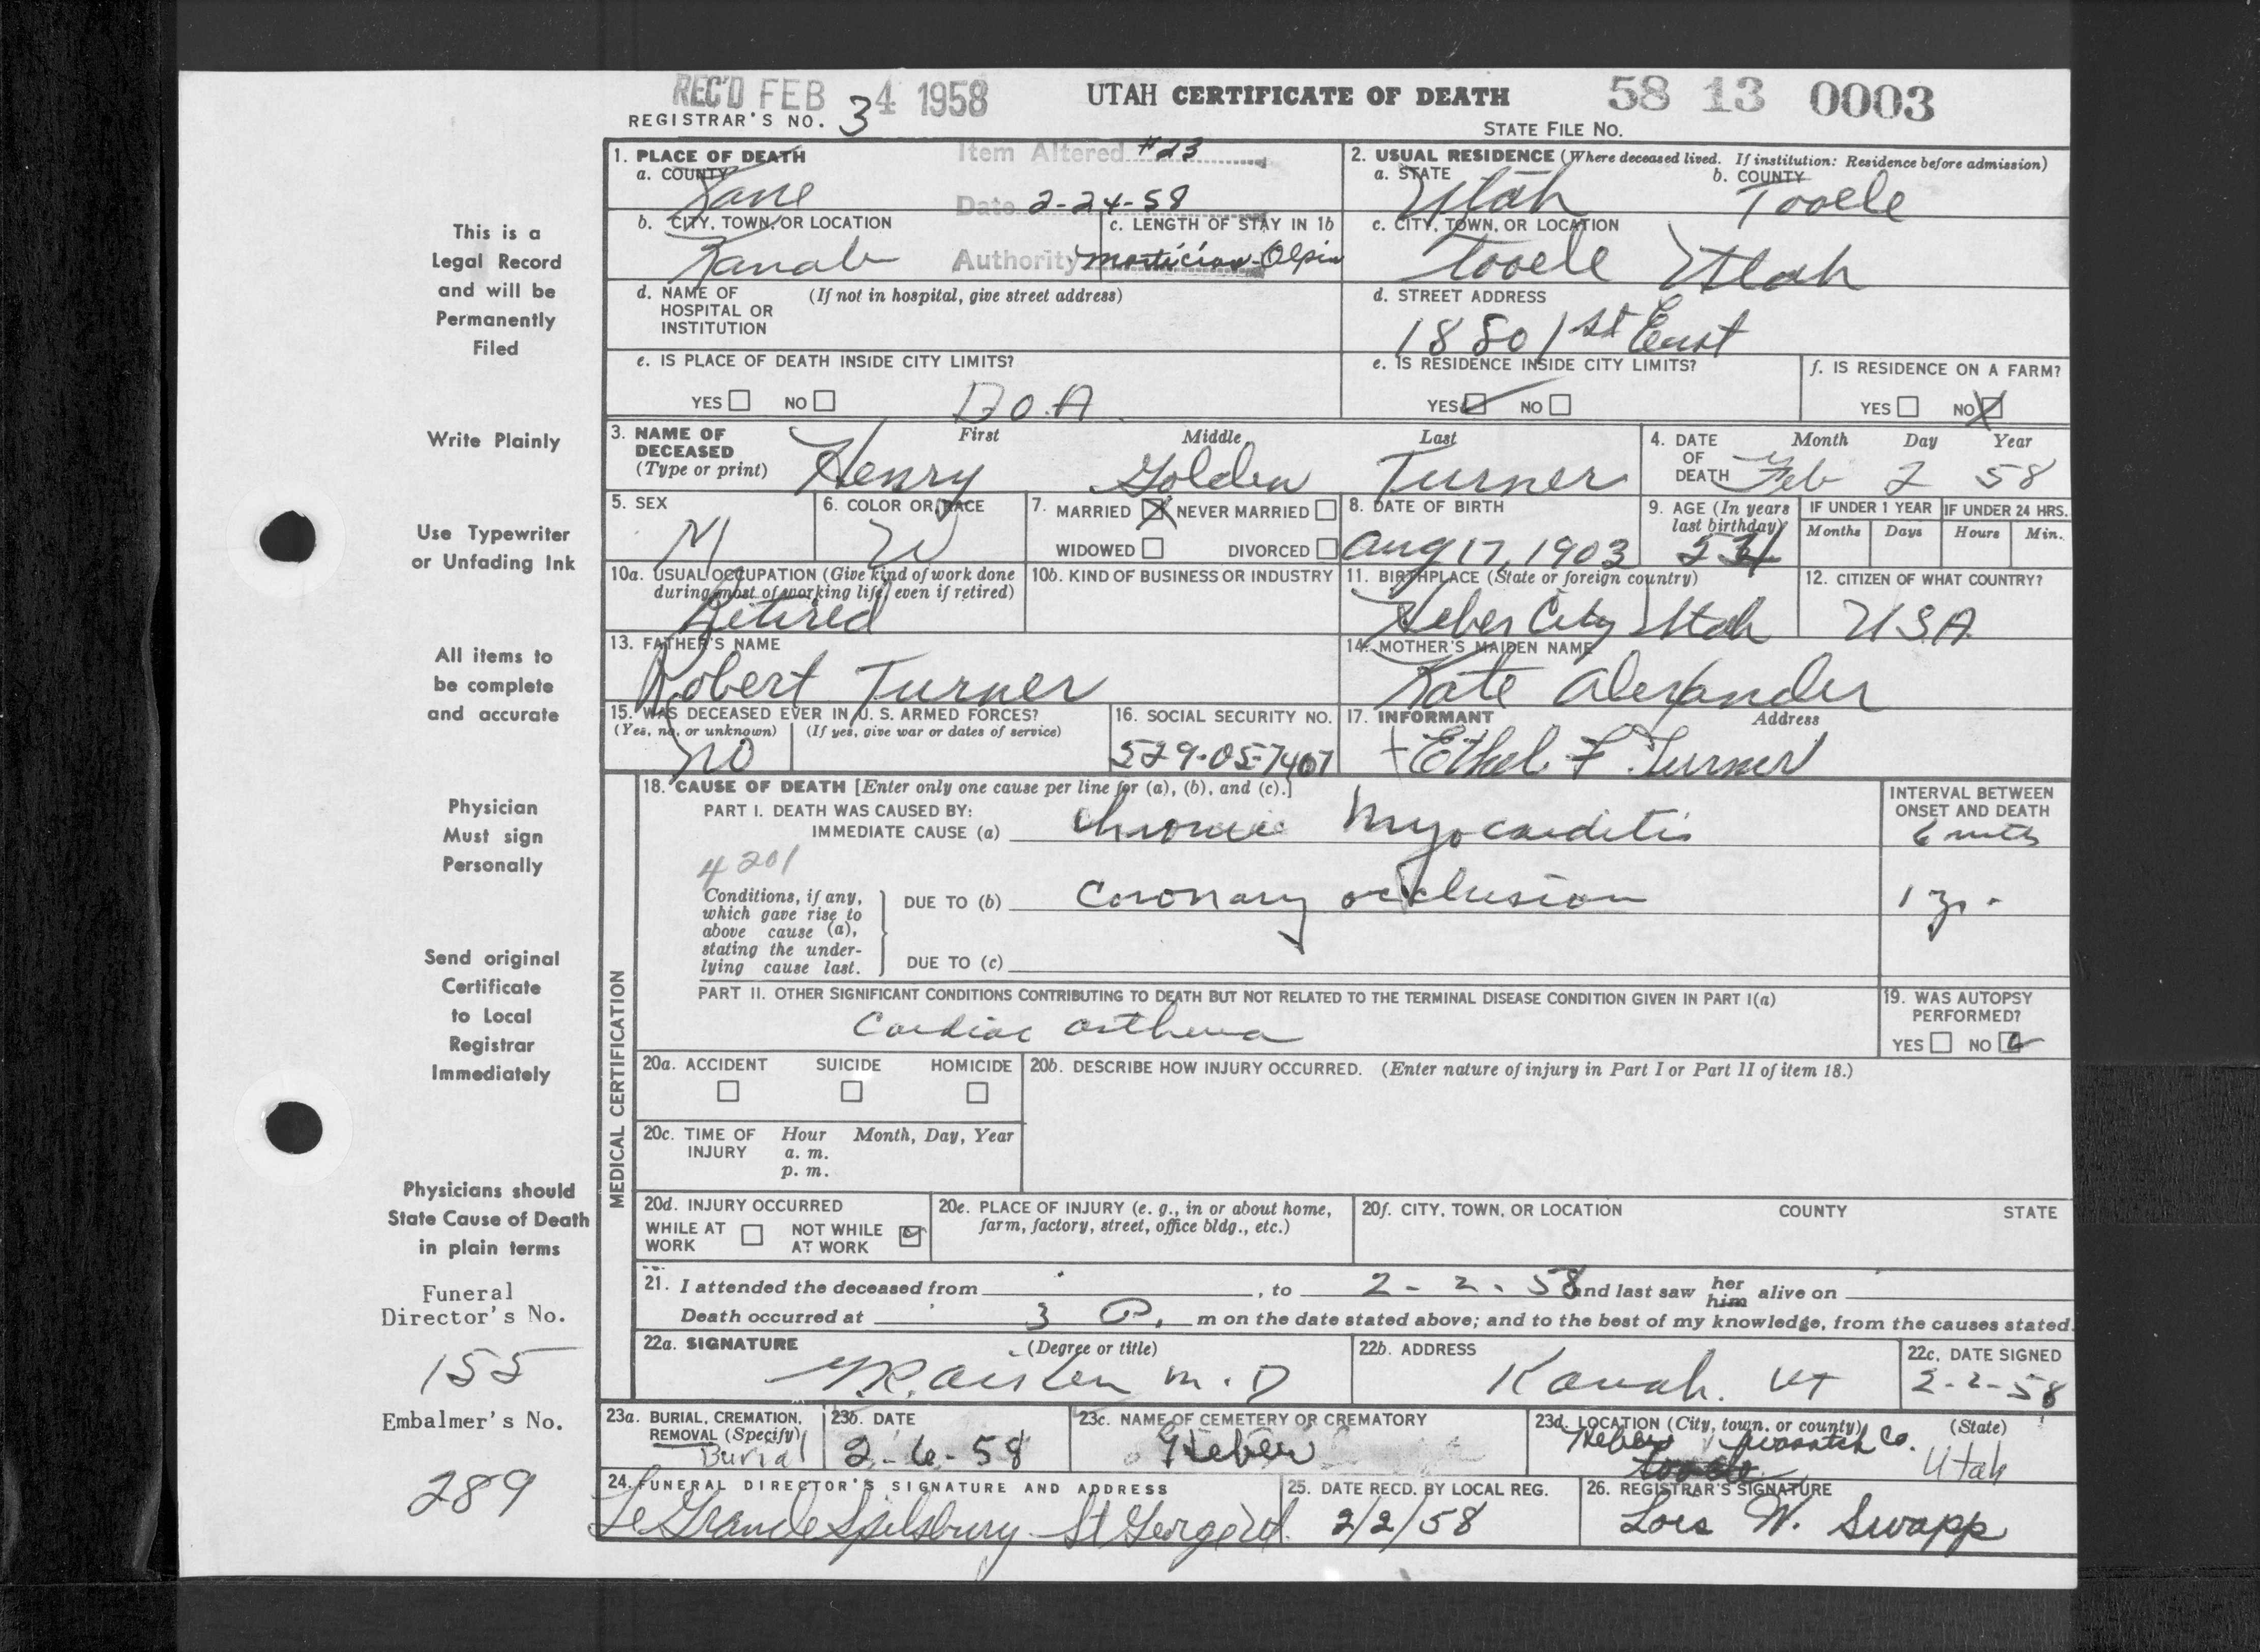 REC'D FEB 4 1958
UTAH CERTIFICATE OF DEATH
58 13 0003
REGISTRAR'S NO. 3
STATE FILE No.
Item Altered #23
Date 2-24-58
Authority mortician-Olpin
1. PLACE OF DEATH
a. COUNTY
Kane
b. CITY, TOWN, OR LOCATION
Kanab
c. LENGTH OF STAY IN 1b
d. NAME OF HOSPITAL OR INSTITUTION (If not in hospital, give street address)
e. IS PLACE OF DEATH INSIDE CITY LIMITS?
YES NO D.O.A.
2. USUAL RESIDENCE (Where deceased lived. If institution: Residence before admission)
a. STATE b. COUNTY
Utah Tooele
c. CITY, TOWN, OR LOCATION
Tooele Utah
d. STREET ADDRESS
188 So 1st East
e. IS RESIDENCE INSIDE CITY LIMITS?
YES NO
f. IS RESIDENCE ON A FARM?
YES NO
3. NAME OF DECEASED (Type or print) First Middle Last
Henry Golden Turner
4. DATE OF DEATH Month Day Year
Feb 2 58
5. SEX
M
6. COLOR OR RACE
W
7. MARRIED NEVER MARRIED
WIDOWED DIVORCED
8. DATE OF BIRTH
Aug 17, 1903
9. AGE (In years last birthday)
IF UNDER 1 YEAR IF UNDER 24 HRS.
Months Days Hours Min.
10a. USUAL OCCUPATION (Give kind of work done during most of working life, even if retired)
Retired
10b. KIND OF BUSINESS OR INDUSTRY
11. BIRTHPLACE (State or foreign country)
Heber City Utah
12. CITIZEN OF WHAT COUNTRY?
USA
13. FATHER'S NAME
Robert Turner
14. MOTHER'S MAIDEN NAME
Kate Alexander
15. WAS DECEASED EVER IN U. S. ARMED FORCES?
(Yes, no, or unknown) (If yes, give war or dates of service)
no
16. SOCIAL SECURITY NO.
529-05-7407
17. INFORMANT Address
Ethel F Turner
MEDICAL CERTIFICATION
18. CAUSE OF DEATH [Enter only one cause per line for (a), (b), and (c).]
PART I. DEATH WAS CAUSED BY:
IMMEDIATE CAUSE (a) Chronic Myocarditis
INTERVAL BETWEEN ONSET AND DEATH
6 mths
4201
Conditions, if any, which gave rise to above cause (a), stating the underlying cause last.
DUE TO (b) Coronary occlusion
1 yr.
DUE TO (c)
PART II. OTHER SIGNIFICANT CONDITIONS CONTRIBUTING TO DEATH BUT NOT RELATED TO THE TERMINAL DISEASE CONDITION GIVEN IN PART I(a)
Cardiac asthma
19. WAS AUTOPSY PERFORMED?
YES NO
20a. ACCIDENT SUICIDE HOMICIDE
20b. DESCRIBE HOW INJURY OCCURRED. (Enter nature of injury in Part I or Part II of item 18.)
20c. TIME OF INJURY Hour Month, Day, Year
a. m.
p. m.
20d. INJURY OCCURRED
WHILE AT WORK NOT WHILE AT WORK
20e. PLACE OF INJURY (e. g., in or about home, farm, factory, street, office bldg., etc.)
20f. CITY, TOWN, OR LOCATION COUNTY STATE
21. I attended the deceased from , to 2-2-58 and last saw her him alive on
Death occurred at 3 P. m on the date stated above; and to the best of my knowledge, from the causes stated.
22a. SIGNATURE (Degree or title)
M.D
22b. ADDRESS
Kanab. UT
22c. DATE SIGNED
2-2-58
23a. BURIAL, CREMATION, REMOVAL (Specify)
Burial
23b. DATE
2-6-58
23c. NAME OF CEMETERY OR CREMATORY
Heber
23d. LOCATION (City, town, or county) (State)
Heber Wasatch Co.
Tooele Utah
24. FUNERAL DIRECTOR'S SIGNATURE AND ADDRESS
LeGrande Spilsbury St George Ut.
25. DATE RECD. BY LOCAL REG.
2/2/58
26. REGISTRAR'S SIGNATURE
Lois W. Swapp
This is a
Legal Record
and will be
Permanently
Filed
Write Plainly
Use Typewriter
or Unfading Ink
All items to
be complete
and accurate
Physician
Must sign
Personally
Send original
Certificate
to Local
Registrar
Immediately
Physicians should
State Cause of Death
in plain terms
Funeral
Director's No.
155
Embalmer's No.
289